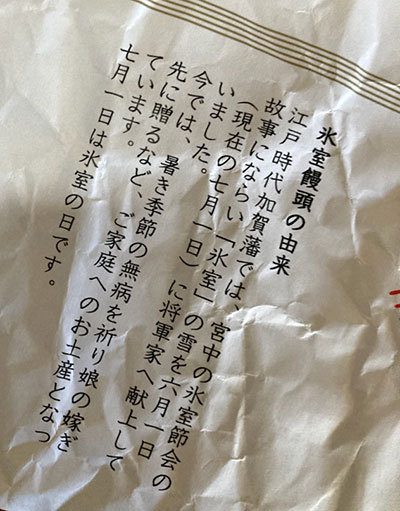 氷室饅頭の由来
江戸時代加賀藩では、宮中の氷室節会の
故事にならい「氷室」の雪を六月一日
(現在の七月一日)に将軍家へ献上して
いました。
今では、暑き季節の無病を祈り娘の嫁ぎ
先に贈るなど、ご家庭へのお土産となっ
ています。
七月一日は氷室の日です。